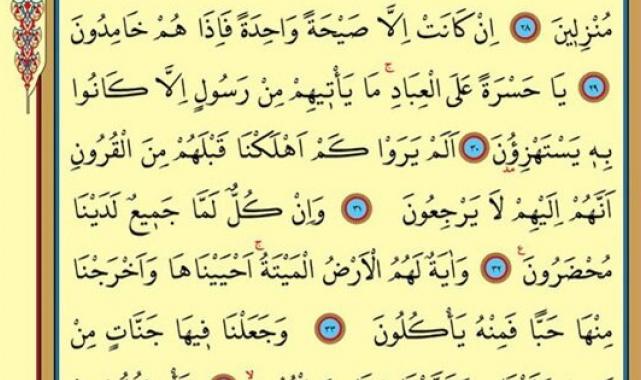 مُنْزِلِينَ ﴿٢٨﴾ اِنْ كَانَتْ اِلَّا صَيْحَةً وَاحِدَةً فَاِذَا هُمْ خَامِدُونَ
﴿٢٩﴾ يَا حَسْرَةً عَلَى الْعِبَادِۚ مَا يَأْت۪يهِمْ مِنْ رَسُولٍ اِلَّا كَانُوا
بِه۪ يَسْتَهْزِؤُ۫نَ ﴿٣٠﴾ اَلَمْ يَرَوْا كَمْ اَهْلَكْنَا قَبْلَهُمْ مِنَ الْقُرُونِ
اَنَّهُمْ اِلَيْهِمْ لَا يَرْجِعُونَ ﴿٣١﴾ وَاِنْ كُلٌّ لَمَّا جَم۪يعٌ لَدَيْنَا
مُحْضَرُونَ۟ ﴿٣٢﴾ وَاٰيَةٌ لَهُمُ الْاَرْضُ الْمَيْتَةُۚ اَحْيَيْنَاهَا وَاَخْرَجْنَا
مِنْهَا حَبًّا فَمِنْهُ يَأْكُلُونَ ﴿٣٣﴾ وَجَعَلْنَا ف۪يهَا جَنَّاتٍ مِنْ